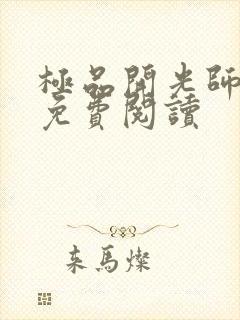 極品開光師
免費閱讀
來馬燦